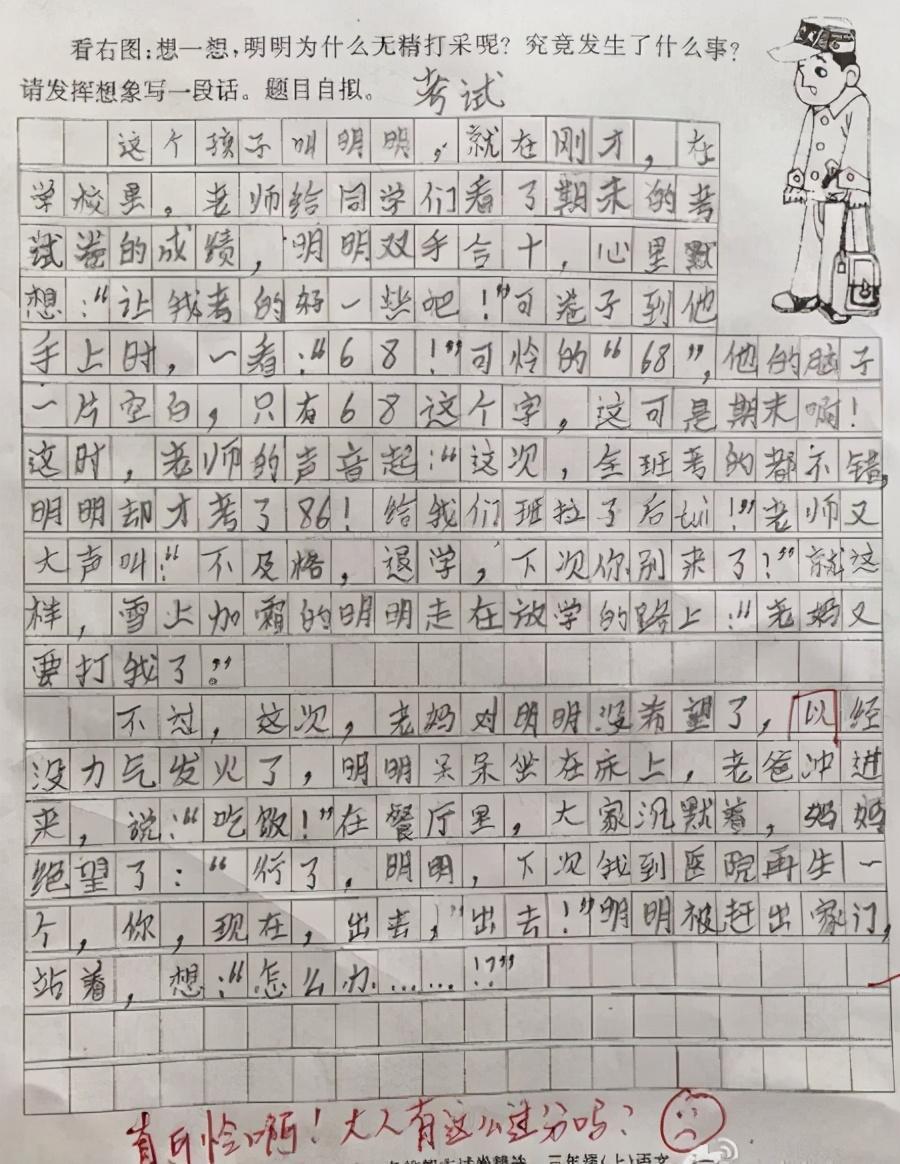 看右图:想一想,明明为什么无精打采呢?究竟发生了什么事?
请发挥想象写一段话。题目自拟。 考试
这个孩子叫明明,就在刚才,在
学校里,老师给同学们看了期末的考
试卷的成绩,明明双手合十,心里默
想:“让我考的好一些吧!”可卷子到他
手上时,一看:“68!”可怜的“68”,他的脑子
一片空白,只有68这个字,这可是期末啊!
这时,老师的声音起:“这次,全班考的都不错,
明明却才考了86!给我们班拉了后tui!”老师又
大声叫:“不及格,退学,下次你别来了!”就这
样,雪上加霜的明明走在放学的路上:“老妈又
要打我了。”
不过,这次,老妈对明明没希望了,以经
没力气发火了,明明呆呆坐在床上,老爸冲进
来,说:“吃饭!”在餐厅里,大家沉默着,妈妈
绝望了:“行了,明明,下次我到医院再生一
个,你,现在,出去,”出去!”明明被赶出家门,
站着,想:“怎么办……!?”
真可怜啊!大人有这么过分吗?
三年级(上)语文